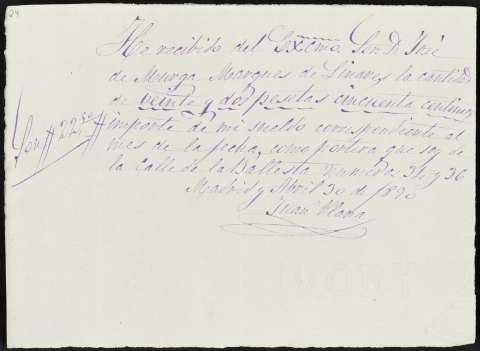 24
He recibido del Excmo. Sor. D. José
de Murga Marques de Linares la cantidad
de veinte y dos pesetas cincuenta centimos
importe de mi sueldo correspondiente al
mes de la fecha, como portera que soy de
la calle de la Ballesta numeros y 36
Madrid y Abril 30 de 1890
Juana
Son # 22,50 #